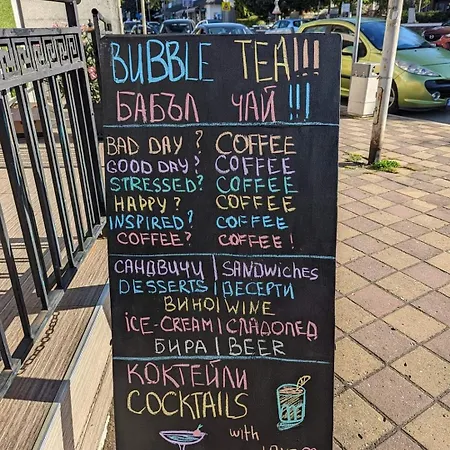 BUBBLE TEA!!!
БАБЪЛ ЧАЙ !!!
BAD DAY? COFFEE
GOOD DAY? COFFEE
STRESSED? COFFEE
HAPPY? COFFEE
INSPIRED? COFFEE
COFFEE? COFFEE!
САНДВИЧИ | SANDWICHES
DESSERTS | ДЕСЕРТИ
ВИНО | WINE
ICE-CREAM | СЛАДОЛЕД
БИРА | BEER
КОКТЕЙЛИ
COCKTAILS
with